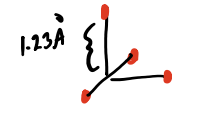 1.23Å